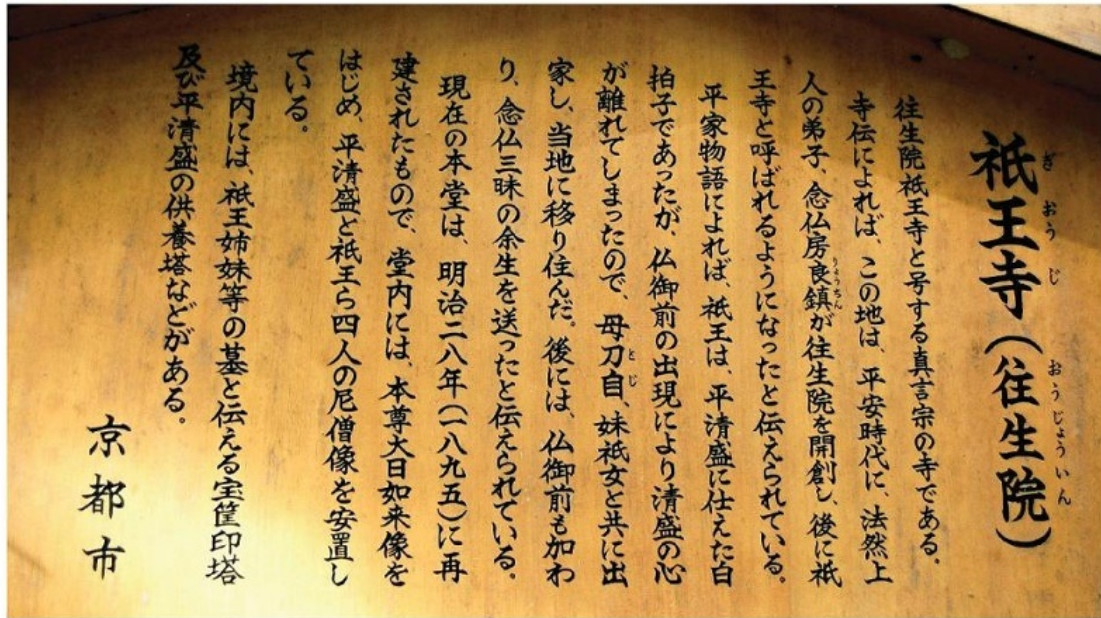 祇王寺(往生院)
ぎおうじ おうじょういん
往生院祇王寺と号する真言宗の寺である。
寺伝によれば、この地は、平安時代に、法然上
人の弟子、念仏房良鎮が往生院を開創し、後に祇
りょうちん
王寺と呼ばれるようになったと伝えられている。
平家物語によれば、祇王は、平清盛に仕えた白
拍子であったが、仏御前の出現により清盛の心
が離れてしまったので、母刀自、妹祇女と共に出
とじ
家し、当地に移り住んだ。後には、仏御前も加わ
り、念仏三昧の余生を送ったと伝えられている。
現在の本堂は、明治二八年(一八九五)に再
建されたもので、堂内には、本尊大日如来像を
はじめ、平清盛と祇王ら四人の尼僧像を安置し
ている。
境内には、祇王姉妹等の墓と伝える宝筐印塔
及び平清盛の供養塔などがある。
京都市